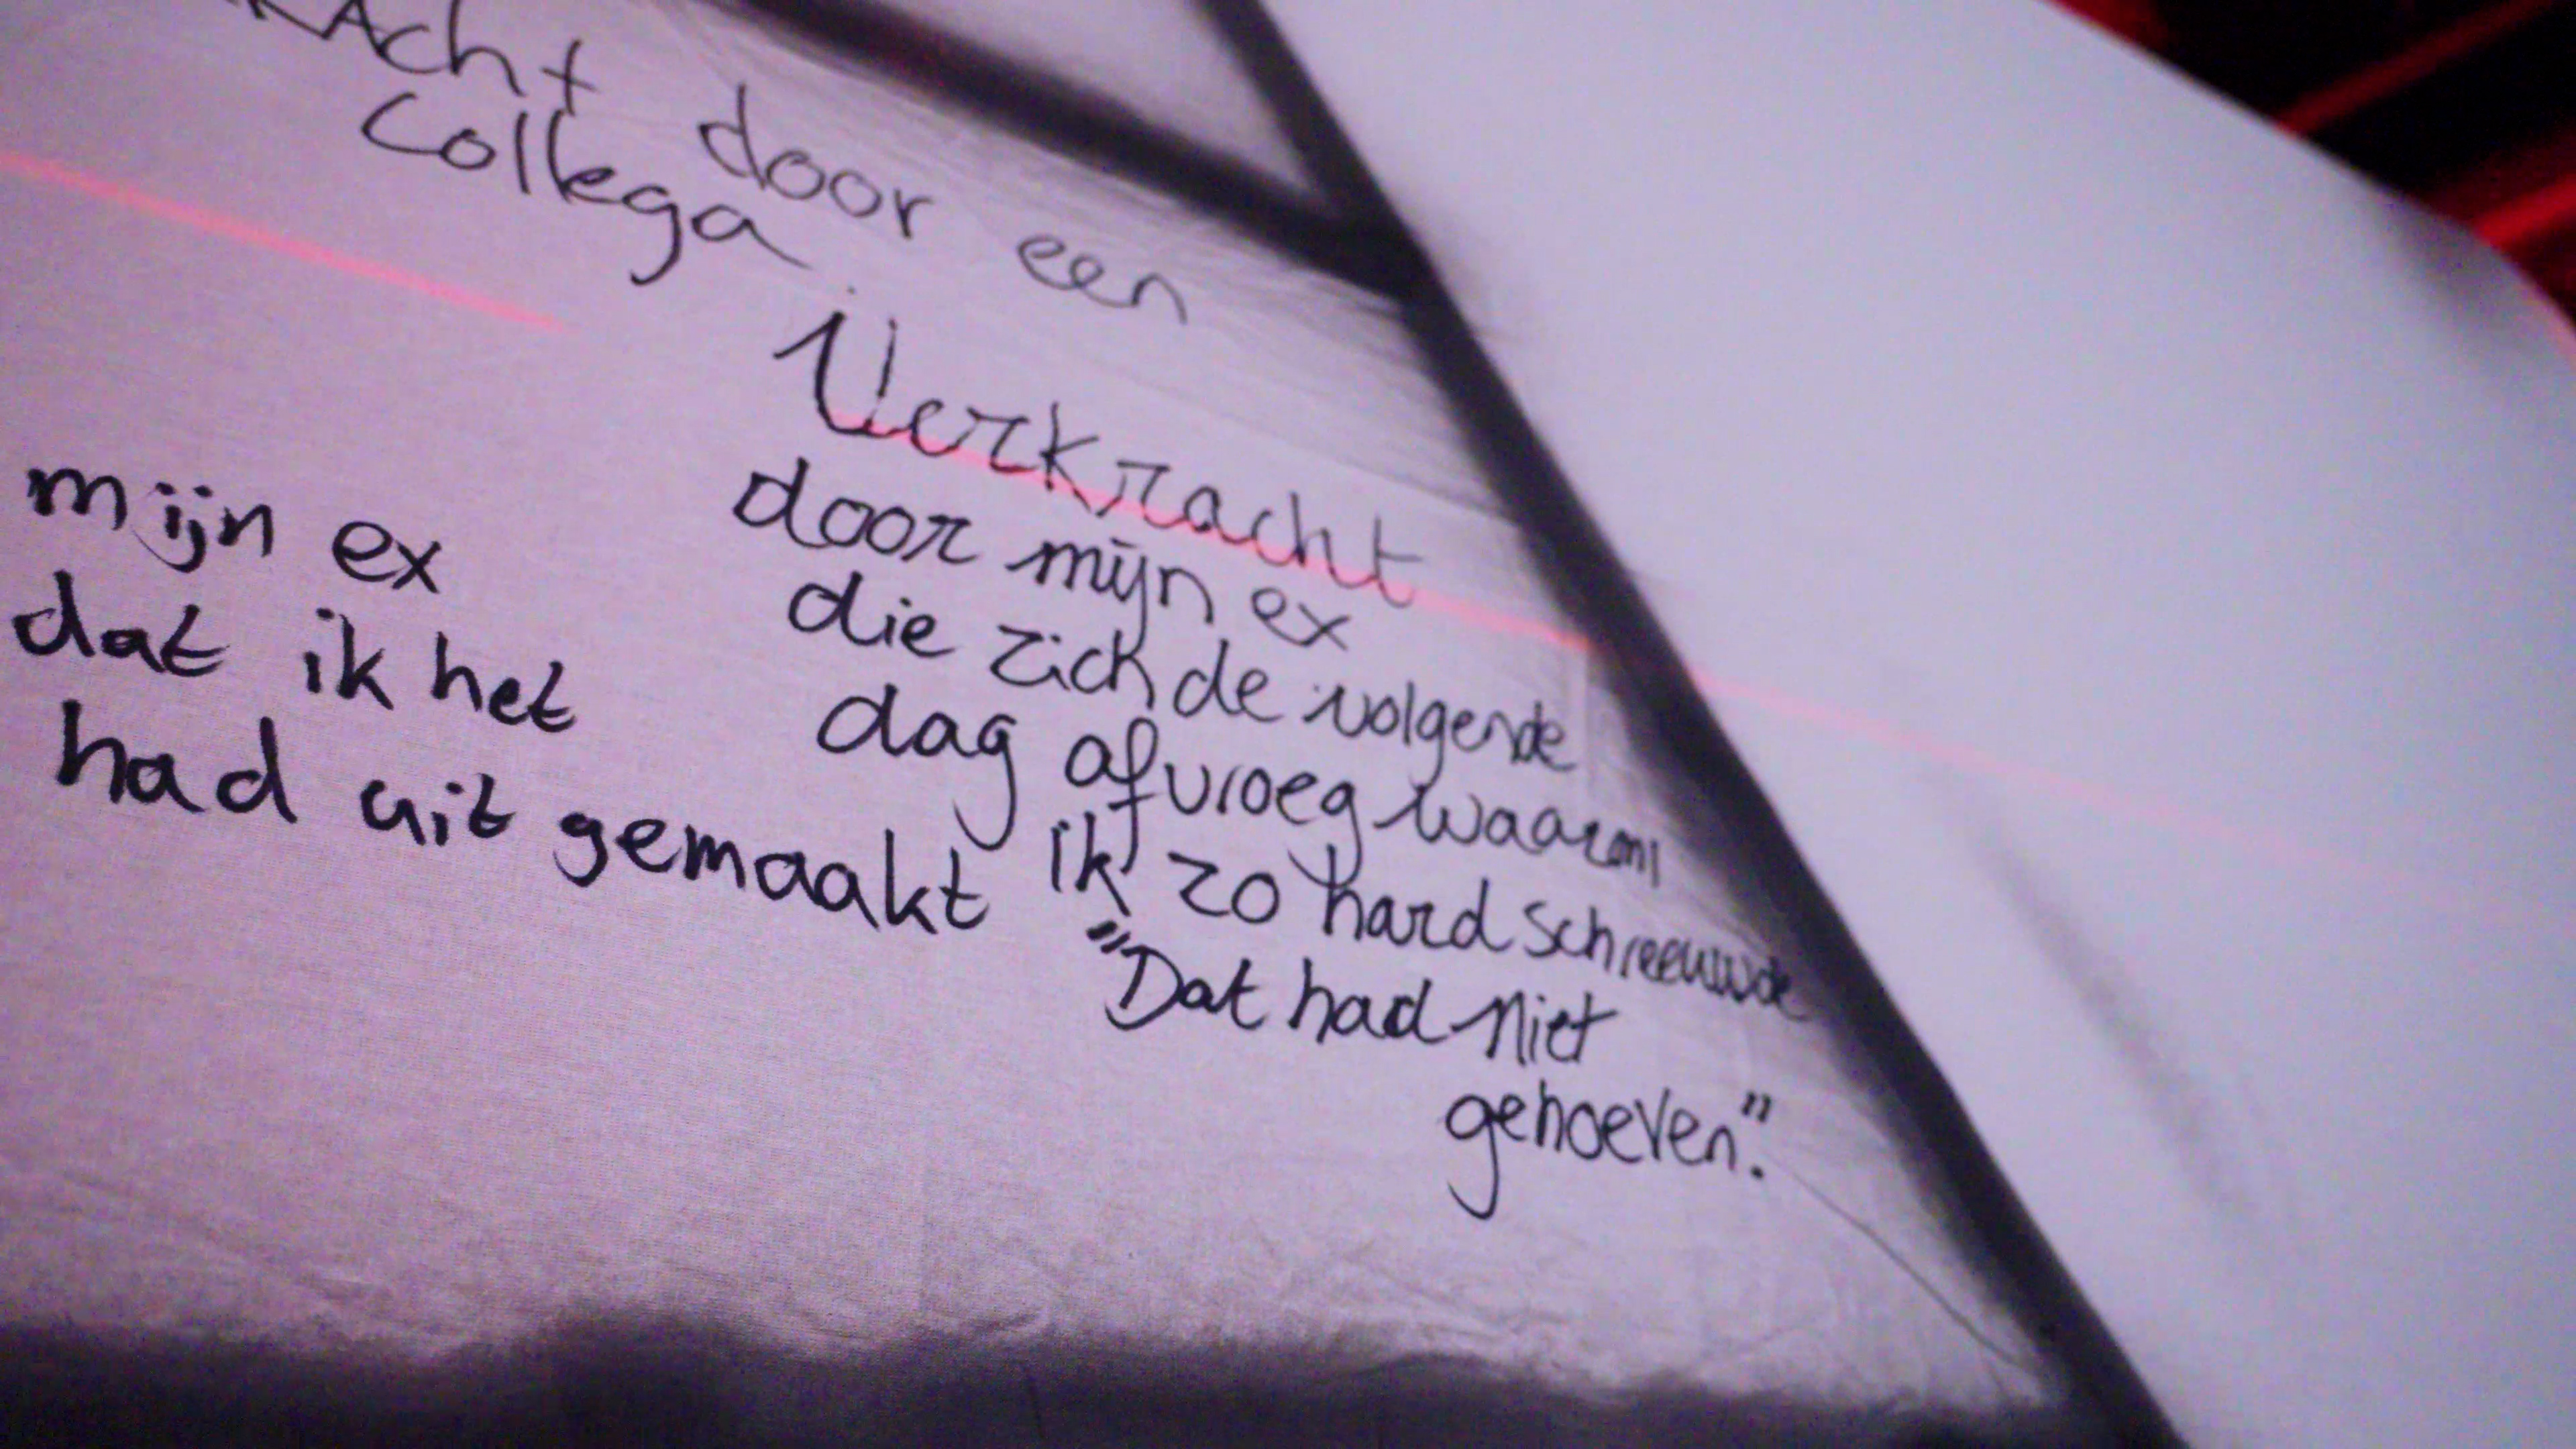 door een
collega
mijn ex
dat ik het
had uit gemaakt
Verkracht
door mijn ex
die zich de volgende
dag afvroeg waarom
ik zo hard schreeuwde
"Dat had niet
gehoeven."